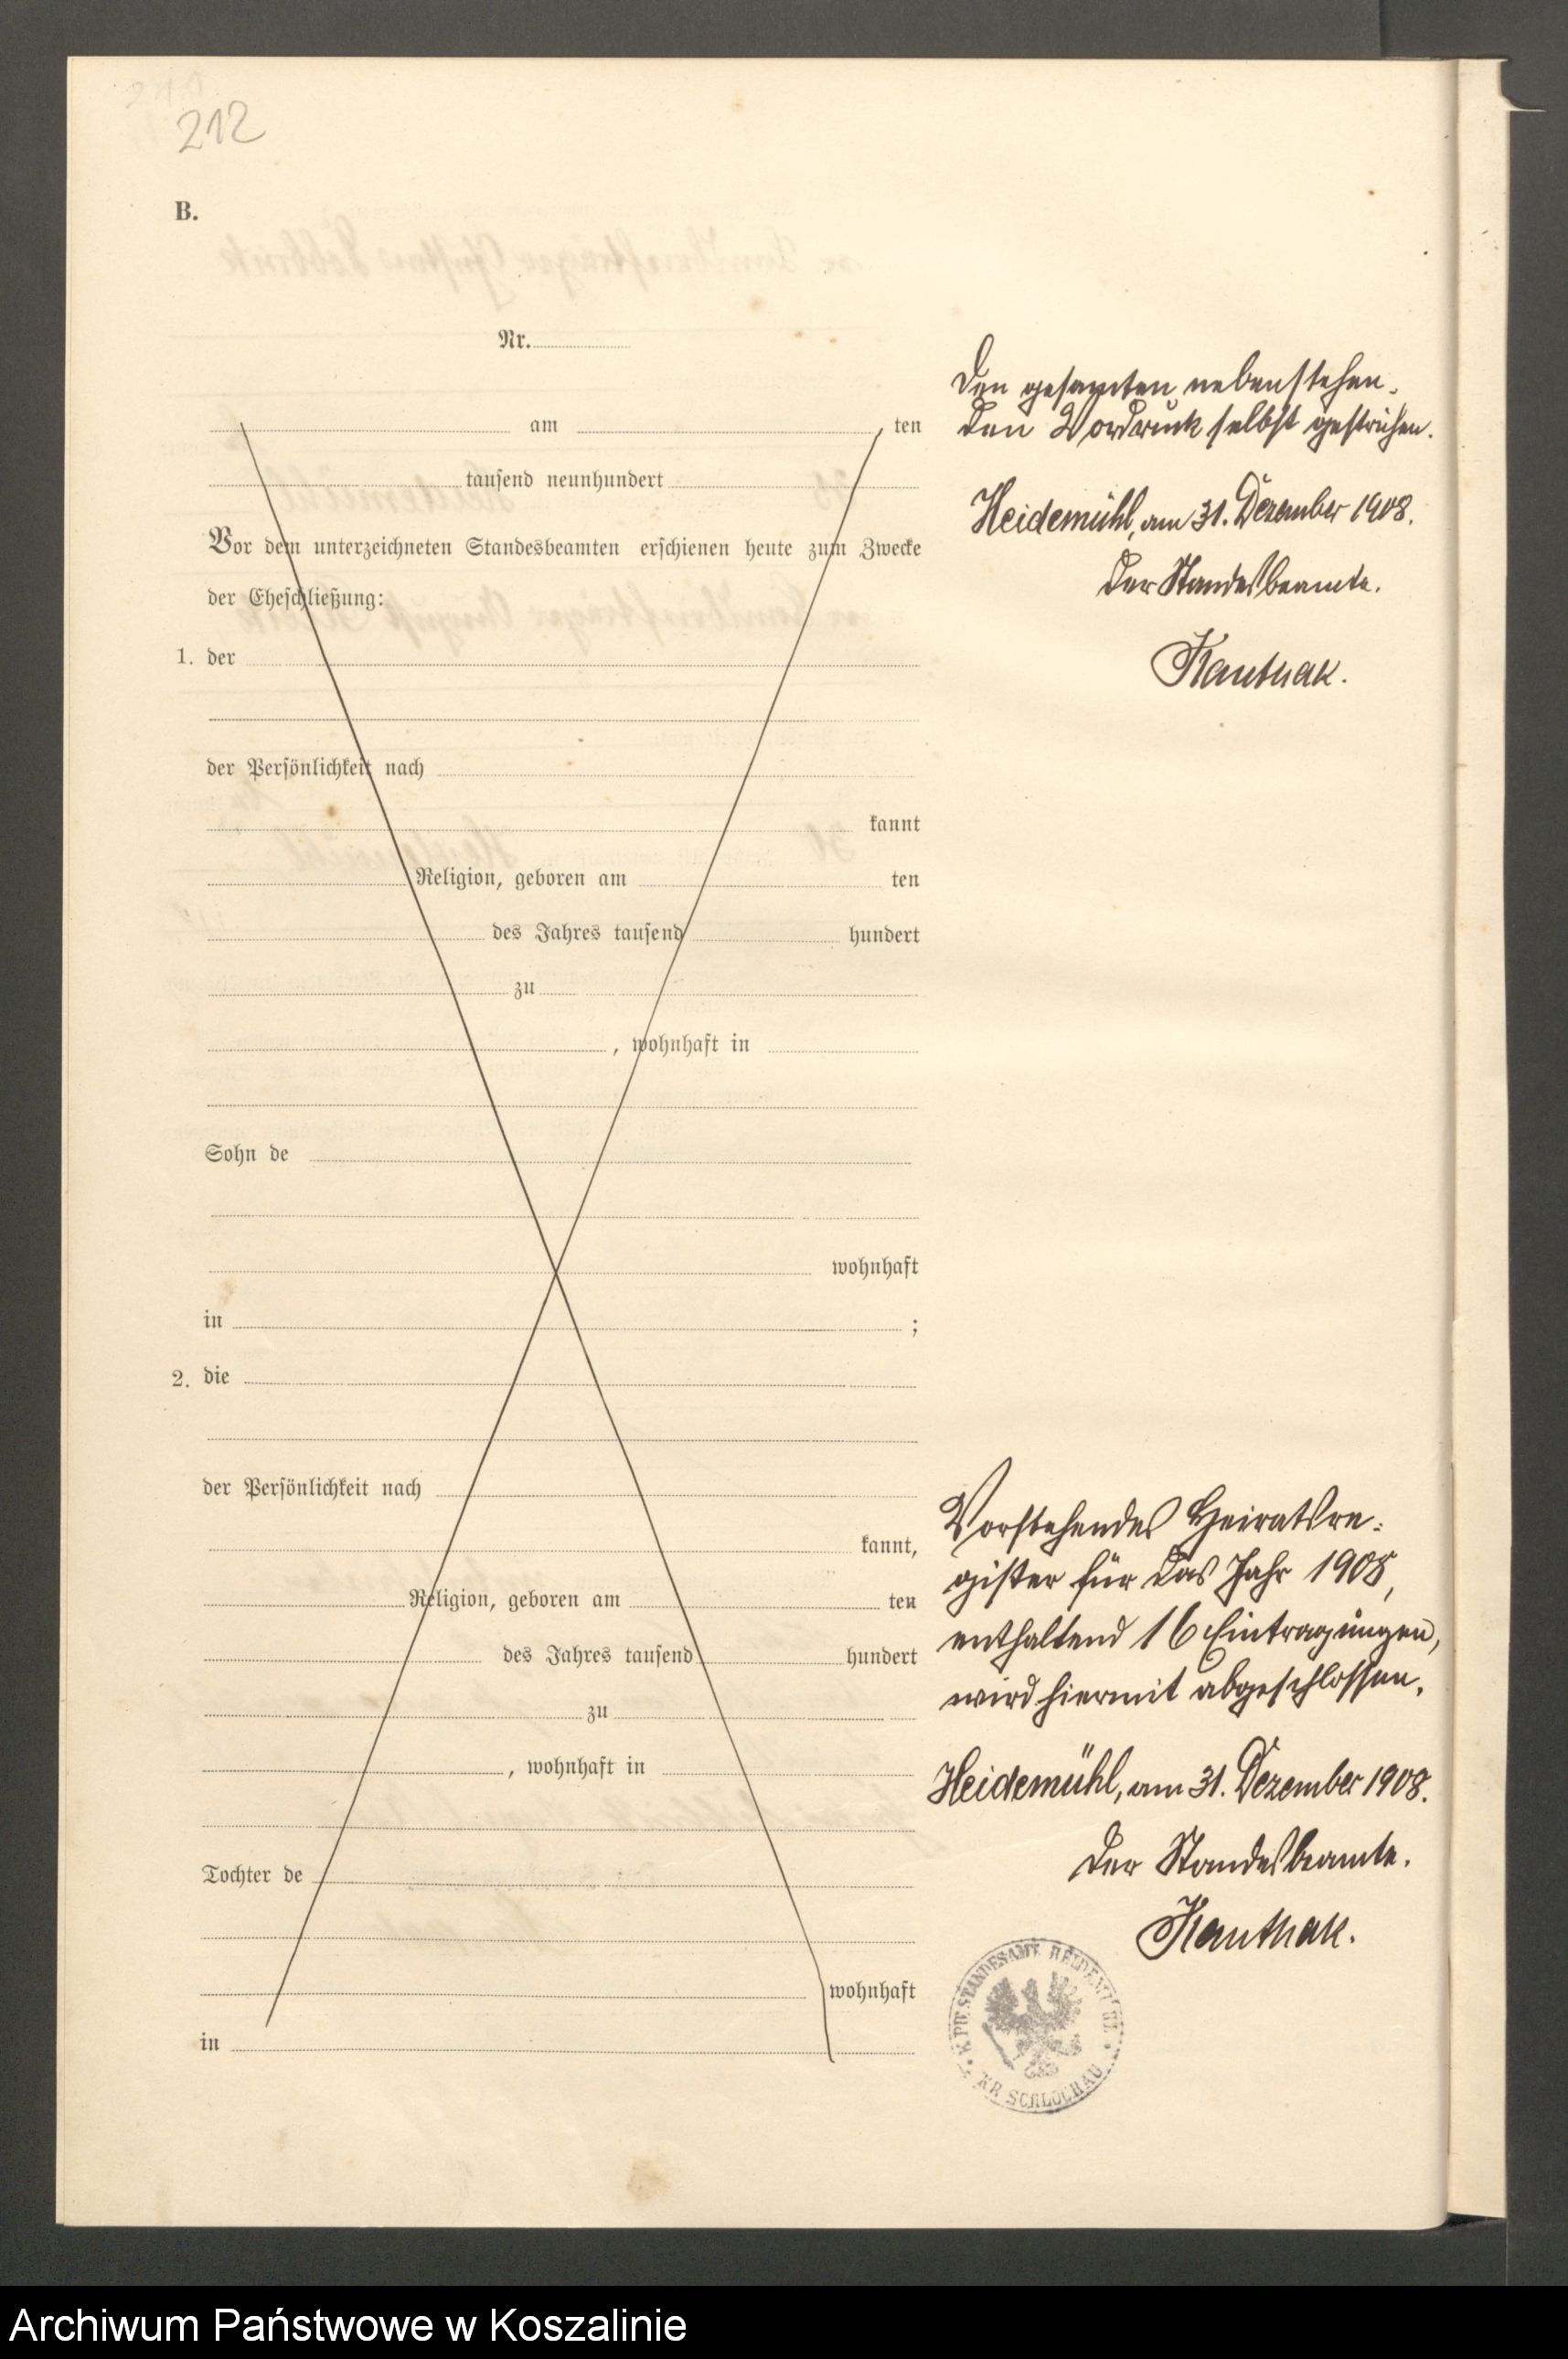 212
B.
Nr.
am ten
tausend neunhundert
Vor dem unterzeichneten Standesbeamten erschienen heute zum Zwecke
der Eheschließung:
1. der
der Persönlichkeit nach
kannt
Religion, geboren am ten
des Jahres tausend hundert
zu
, wohnhaft in
Sohn de
wohnhaft
in ;
2. die
der Persönlichkeit nach
kannt,
Religion, geboren am ten
des Jahres tausend hundert
zu
, wohnhaft in
Tochter de
wohnhaft
in
Den gesamten nebenstehen-
den Vordruck selbst gestrichen.
Heidemühl, am 31. Dezember 1908.
Der Standesbeamte.
Vorstehendes Heiratsre-
gister für das Jahr 1908,
enthaltend 16 Eintragungen,
wird hiermit abgeschlossen.
Heidemühl, am 31. Dezember 1908.
Der Standesbeamte.
K. PR. STANDESAMT HEIDEMÜHL
KR. SCHLOCHAU
Archiwum Państwowe w Koszalinie